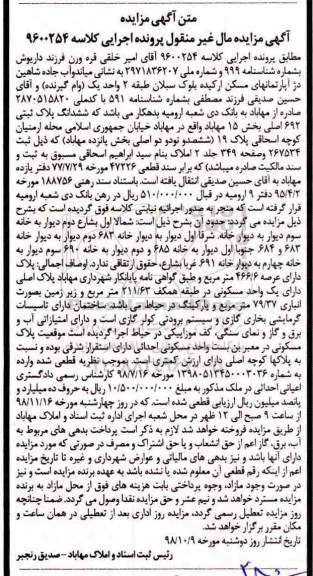 متن آگهی مزایده
آگهی مزایده مال غیر منقول پرونده اجرایی کلاسه ۹۶۰۰۲۵۴
مطابق پرونده اجرایی کلاسه ۹۶۰۰۲۵۴ آقای امیر خلقی قره ورن فرزند داریوش
بشماره شناسنامه ۹۹۹ و شماره ملی ۲۹۷۱۸۳۶۲۰۷ به نشانی میاندوآب جاده شاهین
دژ آپارتمانهای مسکن ارکیده بلوک سبلان طبقه ۲ واحد یک (وام گیرنده) و آقای
حسین صدیقی فرزند مصطفی بشماره شناسنامه ۵۹۱ با کدملی ۲۸۷۰۵۱۵۸۲۰
صادره از مهاباد به بانک دی شعبه ارومیه بدهکار می باشد که ششدانگ پلاک ثبتی
۶۹۲ اصلی بخش ۱۵ مهاباد واقع در مهاباد خیابان جمهوری اسلامی محله ارمنیان
کوچه اسحاقی پلاک ۱۹ (ششصدو نودو دو اصلی بخش پانزده مهاباد) که ذیل ثبت
۲۶۷۵۳۴ صفحه ۳۴۹ جلد ۲ املاک بنام سید ابراهیم اسحاقی مسبوق به ثبت و
سند مالکیت صادره میباشد) که برابر سند قطعی ۴۷۲۲۶ مورخه ۷۷/۷/۲۹ دفتر یازده
مهاباد به آقای حسین صدیقی انتقال یافته است. باستناد سند رهنی ۱۸۸۷۵۶ مورخه
۹۵/۴/۲ دفتر ۹ ارومیه در قبال ۵۱۰/۰۰۰/۰۰۰ ریال در رهن بانک دی شعبه ارومیه
قرار گرفته است که منجر به صدور اجرائیه نیابتی کلاسه فوق گردیده است که بشرح
ذیل مزایده می گردد. حدود آن بشرح ذیل است: شمالا اول بشارع دوم دیوار به خانه
سوم دیوار به دیوار خانه. شرقا اول دیوار به خانه ۶۸۳ دوم دیوار به دیوار خانه
۶۸۳ و ۶۸۴ جنوبا اول دیوار به خانه ۶۸۵ و دوم دیوار به خانه ۶۹۰ سوم به
خانه چهارم به دیوار خانه ۶۹۱ غربا بشارع، حقوق ارتفاقی ندارد. اوصاف اجمالی: پلاک
دارای عرصه ۴۶۶/۶ متر مربع و طبق گواهی نامه پایانکار شهرداری مهاباد پلاک اصلی
دارای یک واحد مسکونی در طبقه همکف ۲۱۱/۶۳ متر مربع و زیر زمین بصورت
انباری ۷۹/۳۷ متر مربع و پارکینگ در حیاط می باشد. ساختمان دارای تاسیسات
گرمایشی بخاری گازی و سیستم برودتی کولر گازی است و دارای امتیازاتی آب و
برق و گاز و نمای سنگی، کف موزاییکی در حیاط اجرا گردیده است موقعیت پلاک
مسکونی در معبر بن بست واحد مسکونی احداثی دارای استقرار شرقی بوده و نسبت
به پلاکها کوچه اصلی دارای ارزش کمتری است. بموجب نظریه قطعی شده وارده
به شماره ۱۳۹۸۰۵۱۳۴۵۰۰۰۳۰۳۶ مورخه ۹۸/۷/۱۶ کارشناس رسمی دادگستری
اعیانی احداثی در ملک مذکور به مبلغ ۱۰/۵۰۰/۰۰۰/۰۰۰ ریال به حروف ده میلیارد و
پانصد میلیون ریال ارزیابی قطعی شده است. که در روز چهارشنبه مورخه ۹۸/۱۱/۱۶
از ساعت ۹ صبح الی ۱۲ ظهر در محل شعبه اجرای اداره ثبت اسناد و املاک مهاباد
از طریق مزایده فروخته خواهد شد لازم به ذکر است پرداخت بدهی های مربوط به
آب، برق، گاز اعم از حق انشعاب و یا حق اشتراک و مصرف در صورتی که مورد مزایده
دارای آنها باشد و نیز بدهی های مالیاتی و عوارض شهرداری و غیره تا تاریخ مزایده
اعم از اینکه رقم قطعی آن معلوم شده یا نشده باشد به عهده برنده مزایده است و نیز
در صورت وجود مازاد، وجوه پرداختی بابت هزینه های فوق از محل مازاد به برنده
مزایده مسترد خواهد شد و نیم عشر و حق مزایده نقدا وصول می گردد. ضمنا چنانچه
روز مزایده تعطیل رسمی گردد، مزایده روز اداری بعد از تعطیلی در همان ساعت و
مکان مقرر برگزار خواهد شد.
تاریخ انتشار روز دوشنبه مورخه ۹۸/۱۰/۹
رئیس ثبت اسناد و املاک مهاباد - صدیق رنجبر